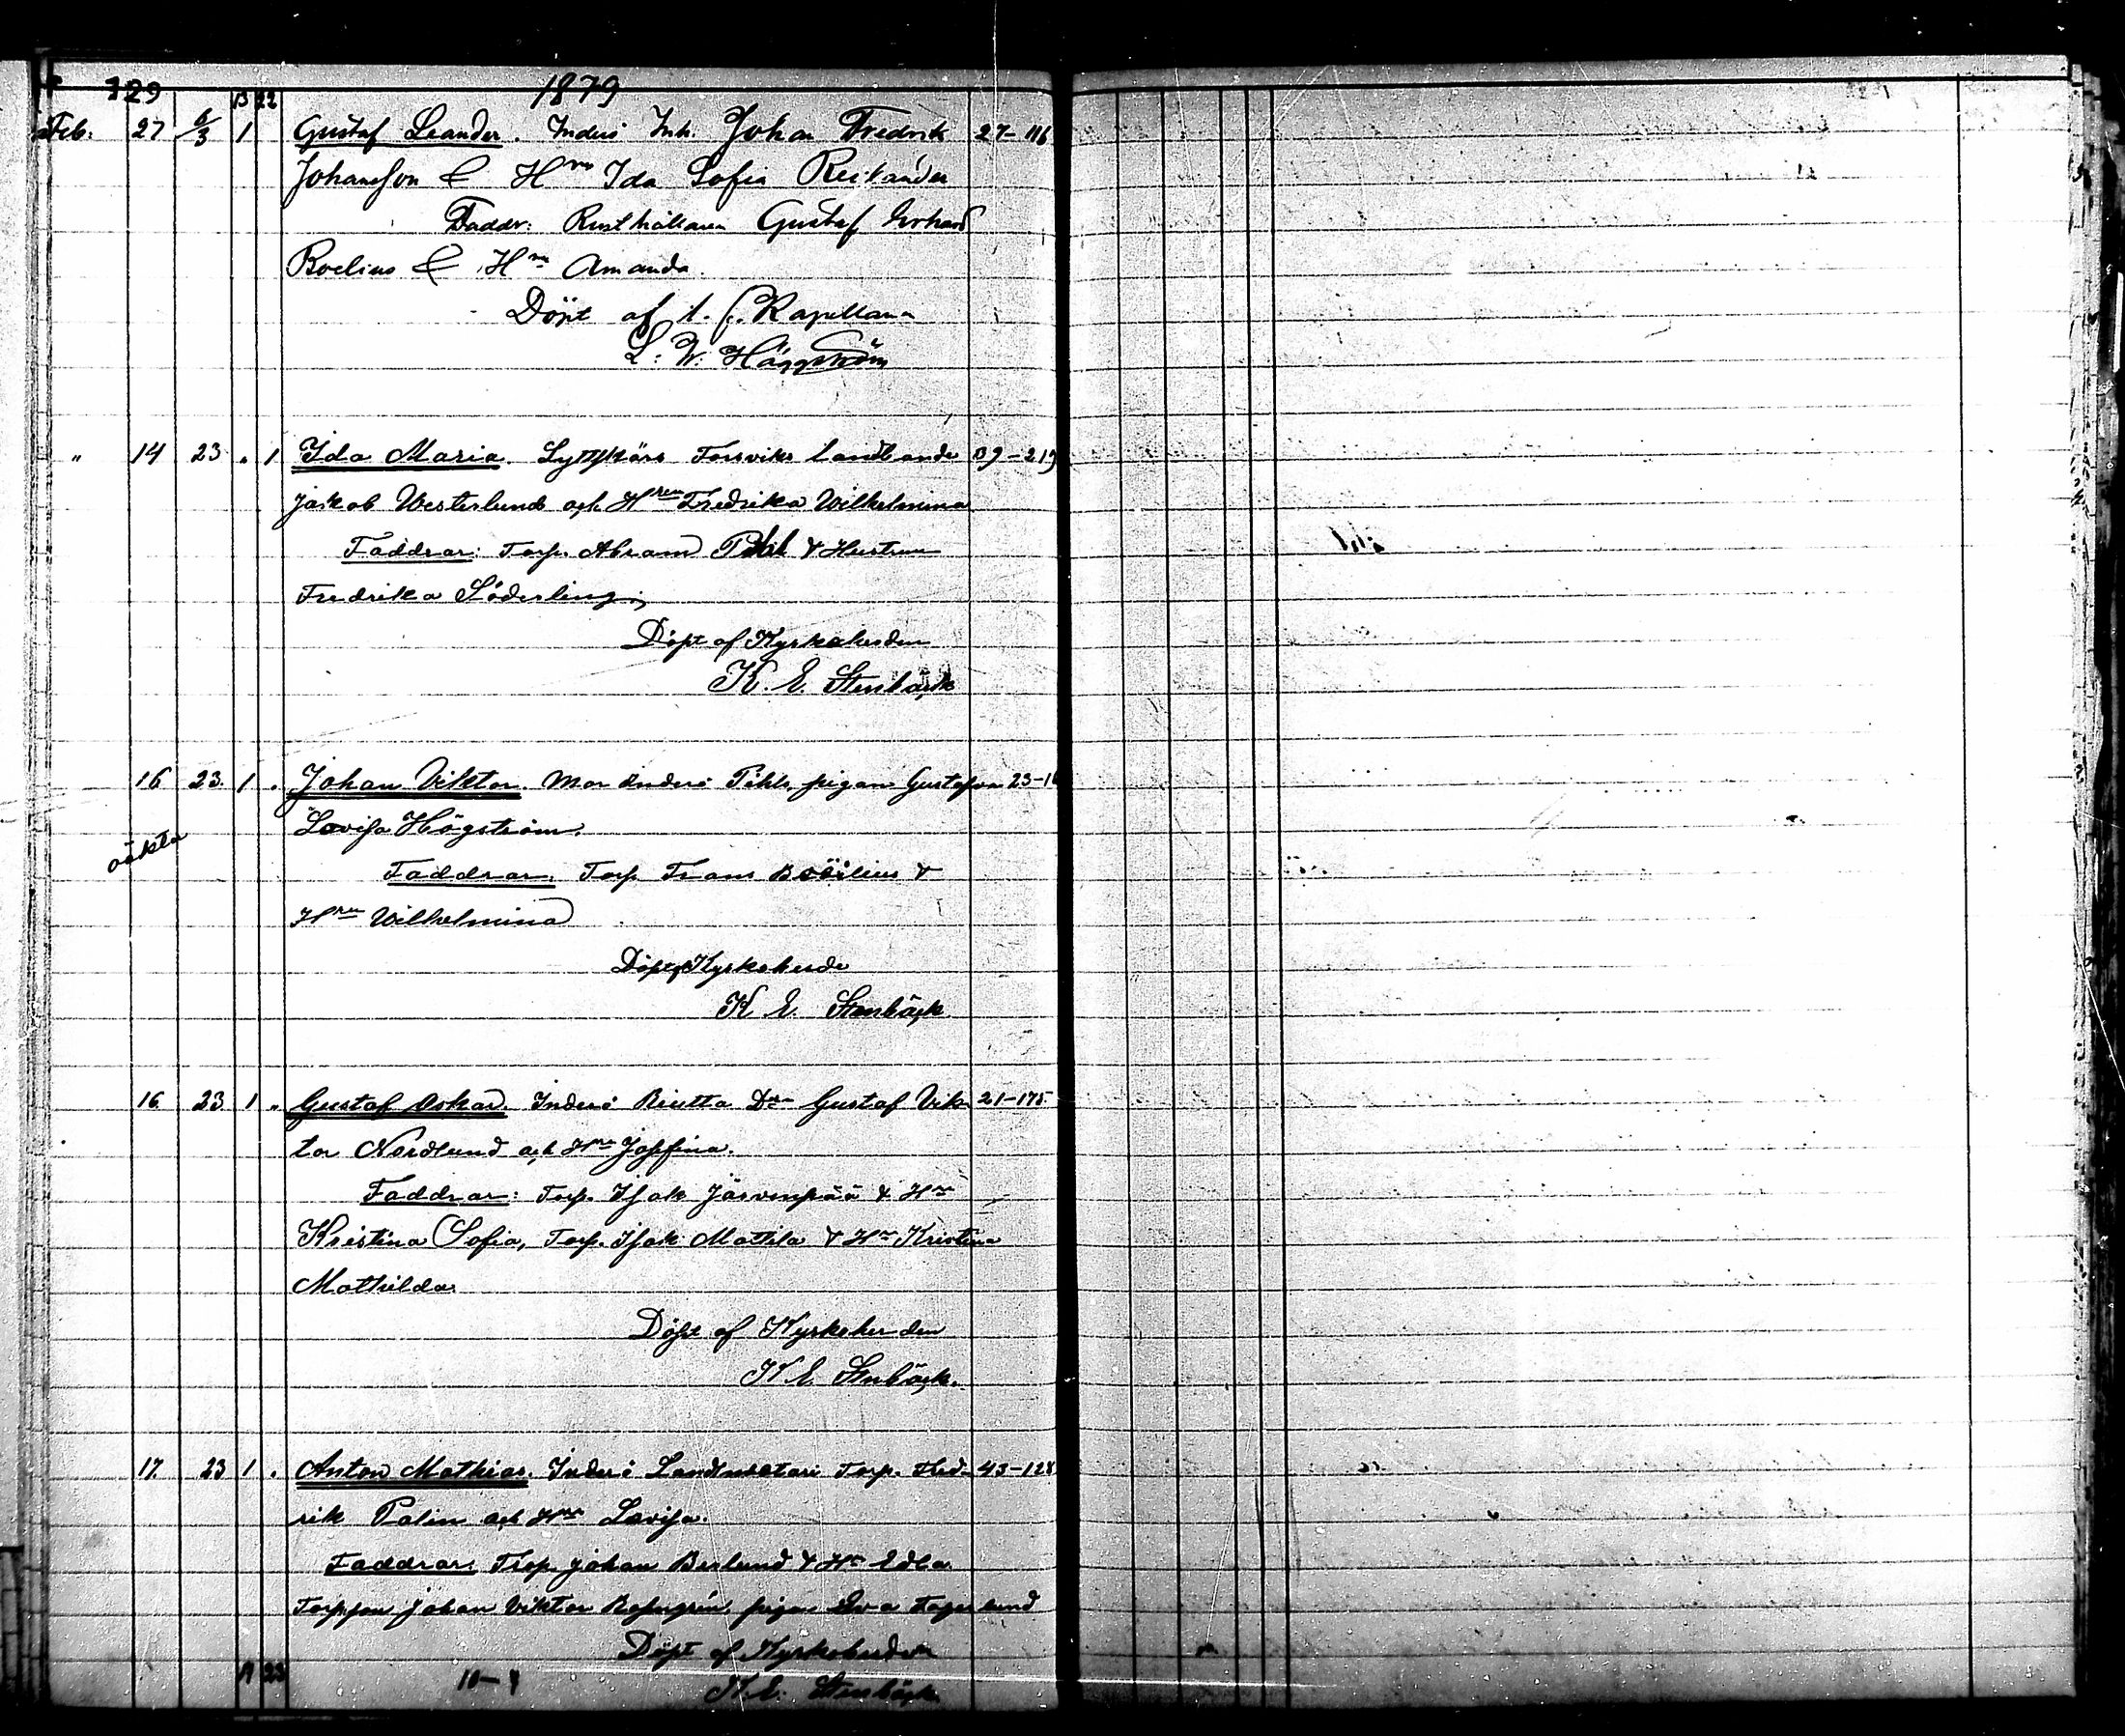 129 1879
13 22
Feb: 27 6/3 1 Gustaf Leander. Inderö Inh. Johan Fredrik 27-116
Johansson & Hru Ida Sofia Reilander
Faddr: Rusthållaren Gustaf Erhard
Boelius & Hru Amanda.
Döpt af t. f. Kapellanen
L. W. Häggström
" 14 23 " 1 Ida Maria. Lyttskärs Forsviks landbonde 39-219
Jakob Westerlund och Hrun Fredrika Wilhelmina
Faddrar: Torp. Abram & Hustrun
Fredrika Söderling
Döpt af Kyrkoherden
K. E. Stenbäck
16 23. 1 " Johan Viktor. Mor Inderö Pihls pigan Gustafva 23-
oäkta Lovisa Högström.
Faddrar: Torp Frans Boëlius &
Hru Wilhelmina
Döpt af Kyrkoherde
K E. Stenbäck
16 23 1 " Gustaf Oskar. Inderö Dr Gustaf Vik- 21-175
tor Nordlund och Hru Josefina.
Faddrar: Torp. Isak Järvenpää & Hru
Kristina Sofia, Torp. Isak Mattila & Hru Kristina
Mathilda
Döpt af Kyrkoherden
K E Stenbäck.
17. 23 1 " Anton Mathias. Inderö Torp. Fred- 43-128
rik Palin och Hru Lovisa.
Faddrar: Torp. Johan Berlund & Hr Edla
Torpson Johan Viktor pigan Eva Fagerlund
Döpt af Kyrkoherden
23 10-9 K. E. Stenbäck